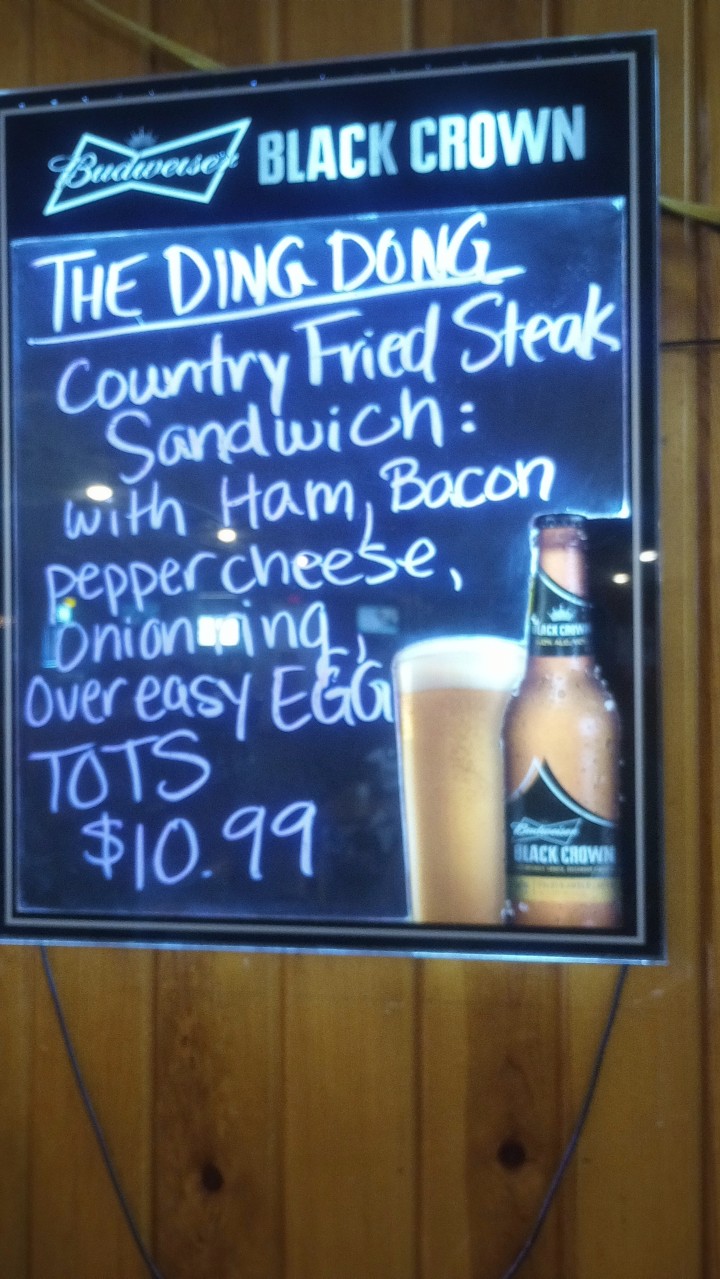 Budweiser BLACK CROWN
THE DING DONG
Country Fried Steak
Sandwich:
with Ham, Bacon
peppercheese,
onion ring,
over easy EGG
TOTS
$10.99
BLACK CROWN
Budweiser
BLACK CROWN